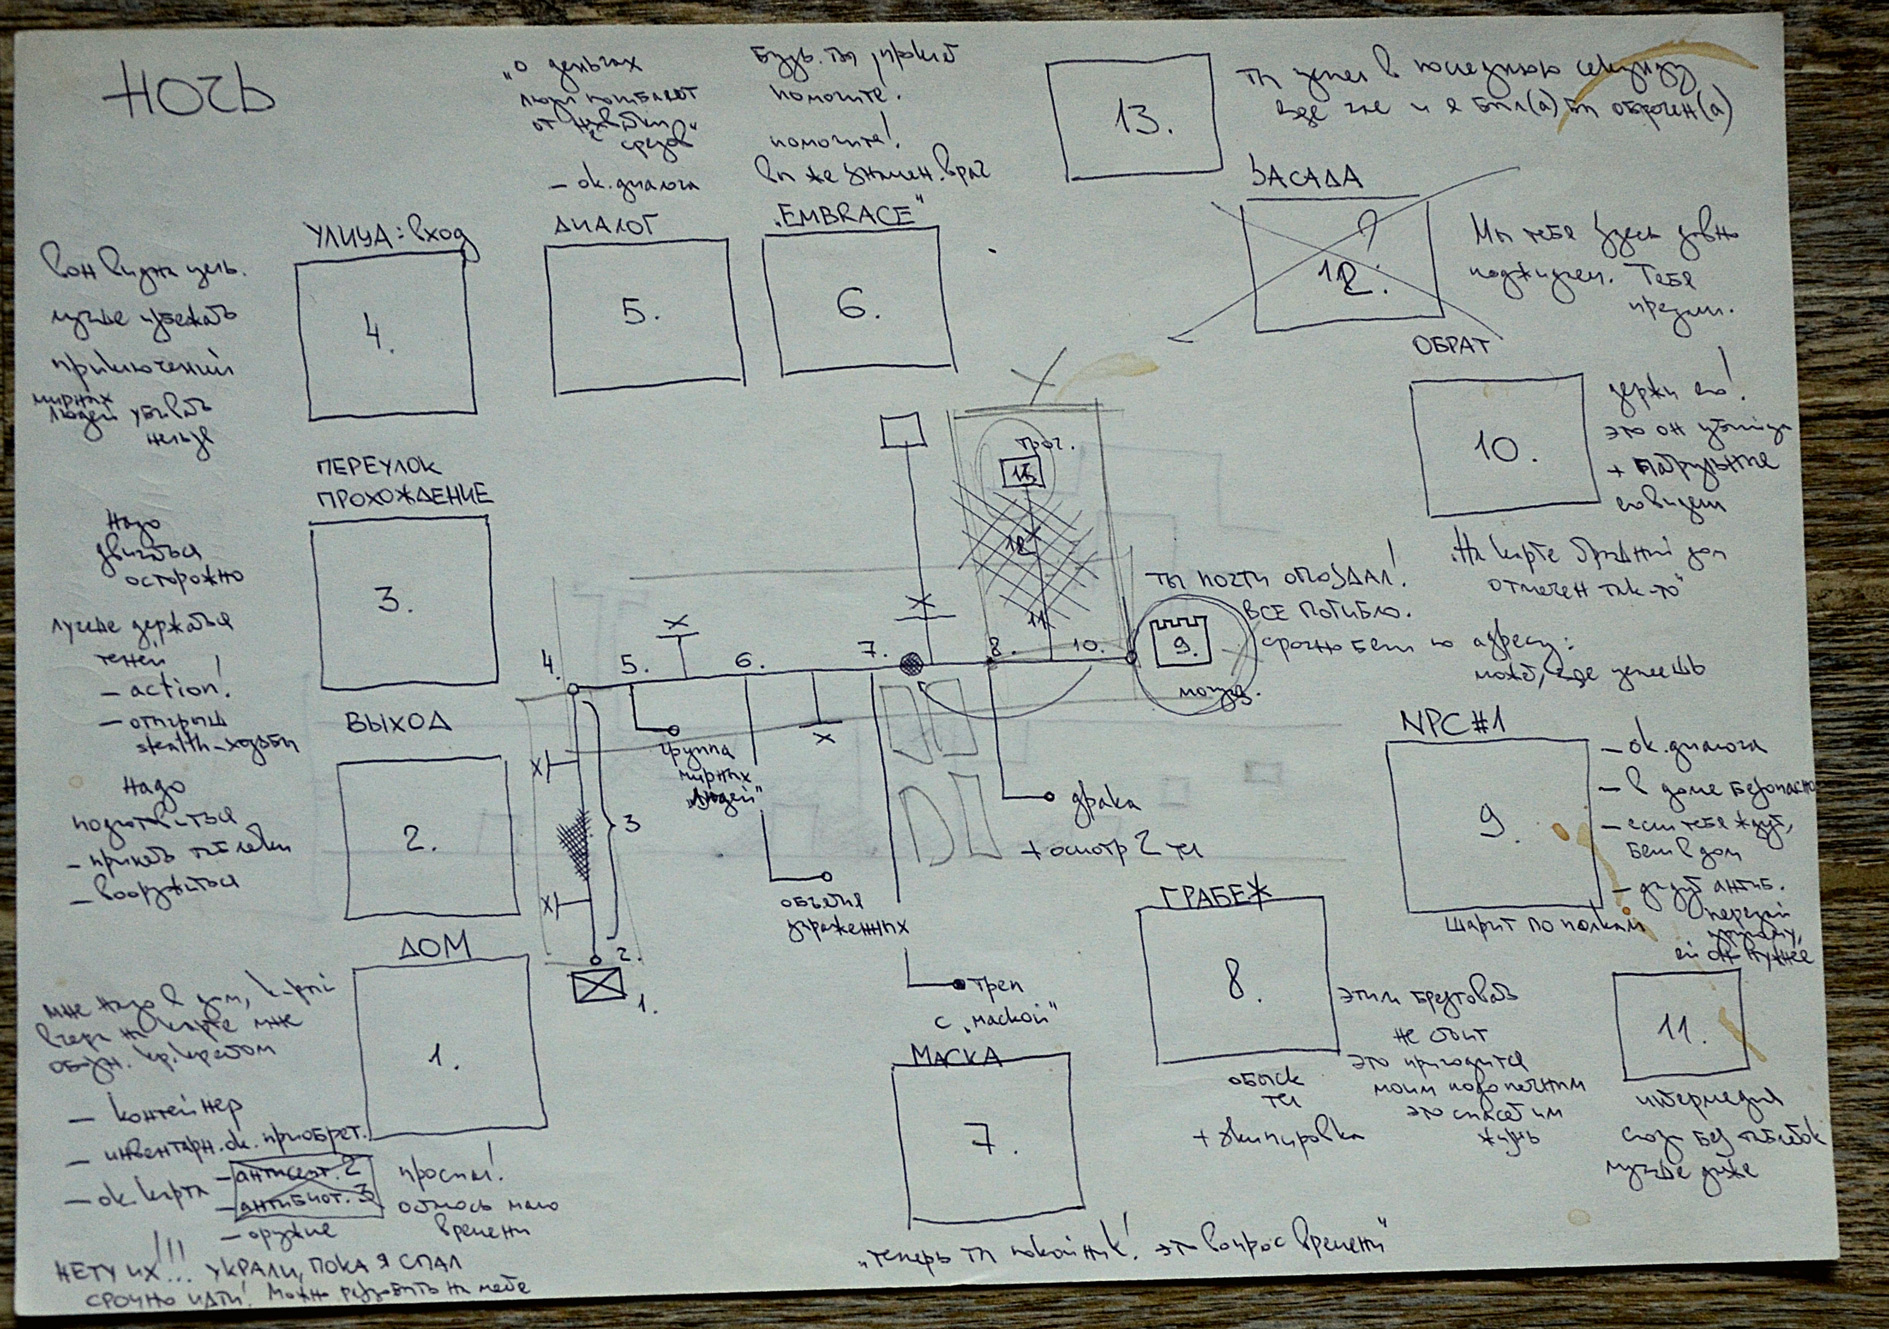 НОЧЬ
„О деньгах
люди погибают
от
- ок. диалога
ДИАЛОГ
5.
помогите.
помогите!
вы же знамен. врач
„EMBRACE"
6.
13.
ты успел в последнюю секунду
еще и я был(а) бы обречен(а)
ЗАСАДА
?
12.
Мы тебя здесь давно
поджидаем. Тебя
предали.
УЛИЦА: вход
4.
вон видна цель.
лучше избежать
приключений
мирных
людей убивать
нельзя
ОБРАТ
10.
держи его!
это он убийца
+ патрульные
его видят
„На карте дом
отмечен так-то"
ПЕРЕУЛОК
ПРОХОЖДЕНИЕ
3.
Надо
двигаться
осторожно
лучше держаться
теней!
- action!
- открыт
stealth-ходьбы
ВЫХОД
2.
Надо
подготовиться
- принять таблетки
- вооружиться
ДОМ
1.
мне надо в дом, который
вчера на карте мне
обозн. кр. крестом
- контейнер
- инвентарн. ок. приобрет.
- ок. карта
- антисепт. 2
- антибиот. 3
- оружие
проспал!
осталось мало
времени
НЕТУ ИХ!!! УКРАЛИ, ПОКА Я СПАЛ
СРОЧНО ИДТИ!
4.
5.
6.
7.
8.
10.
11
12
13.
9.
3
2.
1.
X
X
X
X
X
группа
мирных
„людей"
объятия
зараженных
треп
с „маской"
драка
+ осмотр 2 тел
ты почти опоздал!
ВСЕ ПОГИБЛО.
срочно беги по адресу:
может, где успеешь
NPC#1
9.
- ок. диалога
- в доме безопасно
- если тебя ждут,
беги в дом
- дадут антиб.
передай
ей он нужнее
шарит по полкам
ГРАБЕЖ
8.
обыск
тел
+ экипировка
этим брезговать
не стоит
это пригодится
моим подопечным
это спасет им
жизнь
МАСКА
7.
„теперь ты покойник! это вопрос времени"
11.
интермедия
сюда без таблеток
лучше даже